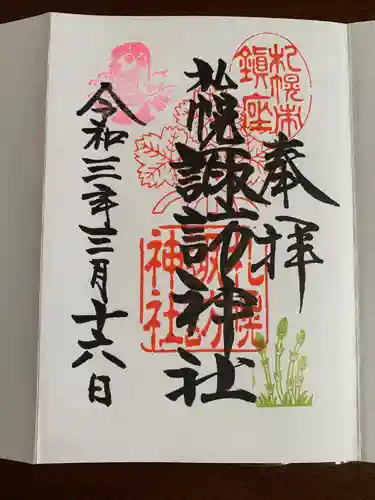 奉拝
札幌諏訪神社
令和三年三月十六日
札幌市
鎮座
札幌
諏訪
神社